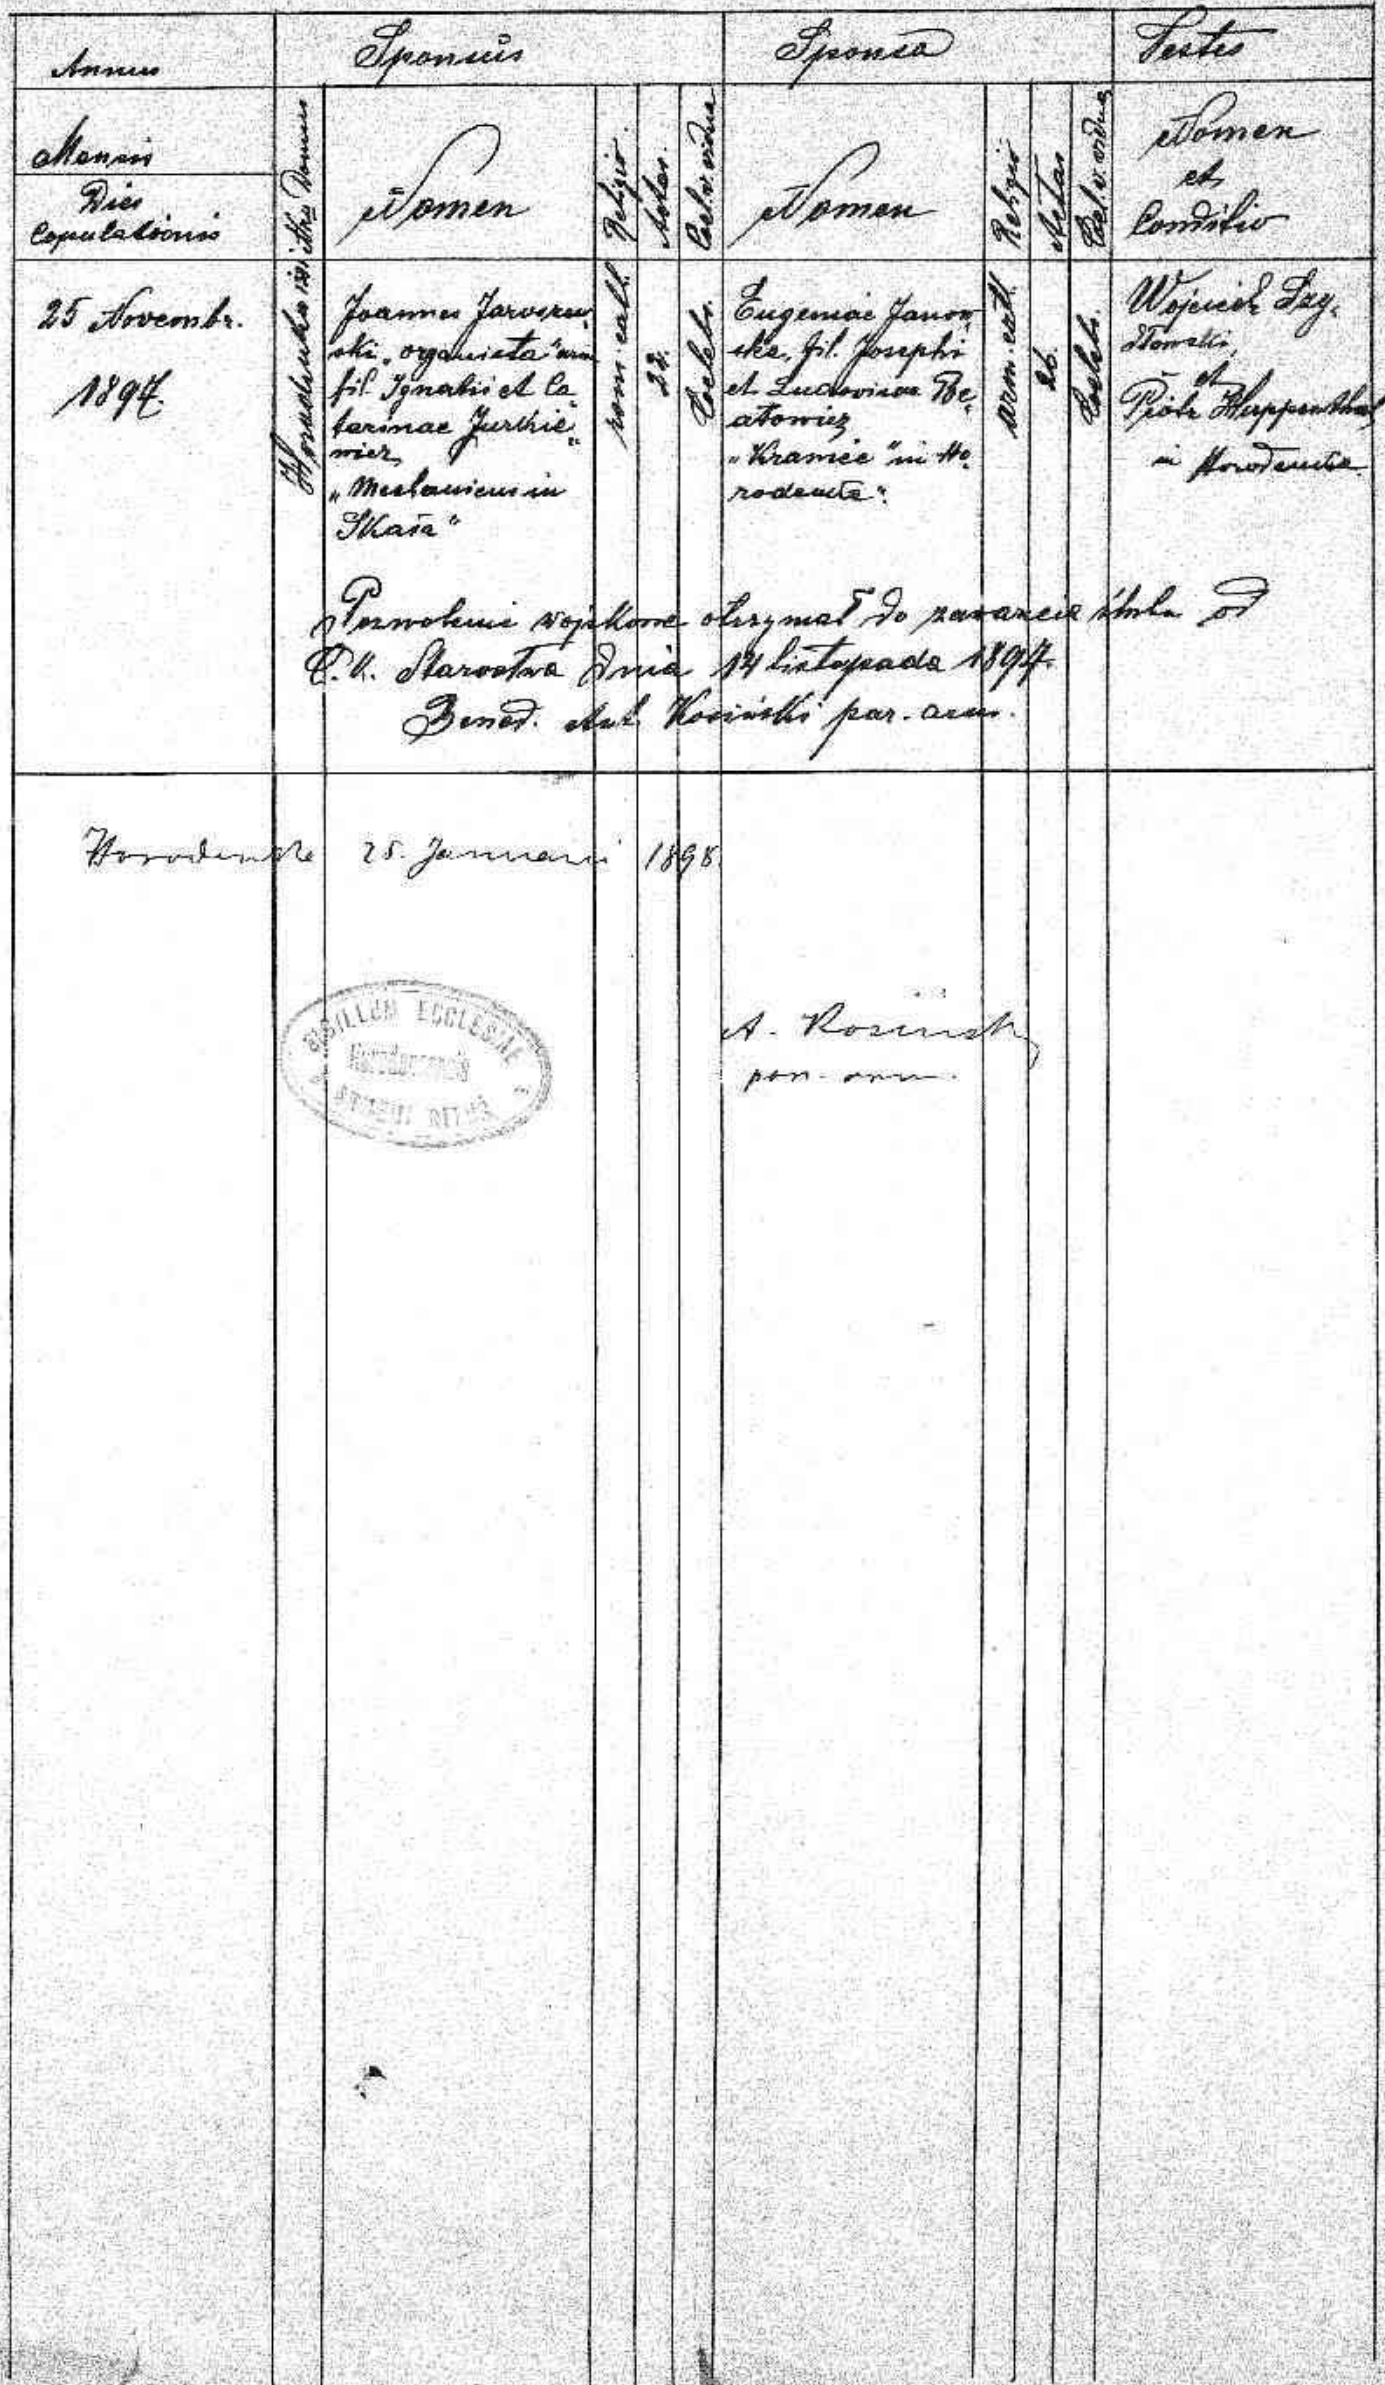 Annus
Sponsus
Sponsa
Testes
Mensis
Dies
Copulationis
Domus
Nomen
Religio.
Aetas.
Cael. v. vidua
Nomen
Religio
Aetas
Cael. v. vidua
Nomen
et
Conditio
25 Novembr.
1897.
Horodenka
Joannes Jaroszew„
ski „organista" arm
fil. Ignatii et Ca„
tarinae Jurkie„
wicz
„Mechanicus in
Skała"
rom. cath.
Coelebs.
Eugeniae Janow„
ska, fil. Josephi
et Ludovicae Be„
atowicz
„Kramice" in Ho„
rodenka".
arm. cath.
26.
Coelebs.
Wojciech Szy„
dłowski,
et
Piotr Huppenthal
in Horodenka.
Pozwolenie wojskowe otrzymał do zawarcia ślubu od
C. K. Starostwa dnia 14 listopada 1897.
Bened. Ant. Kosiński par. arm.
Horodenka 25. Januarii 1898.
SIGILLUM ECCLESIAE
A. Kosiński
par. arm.